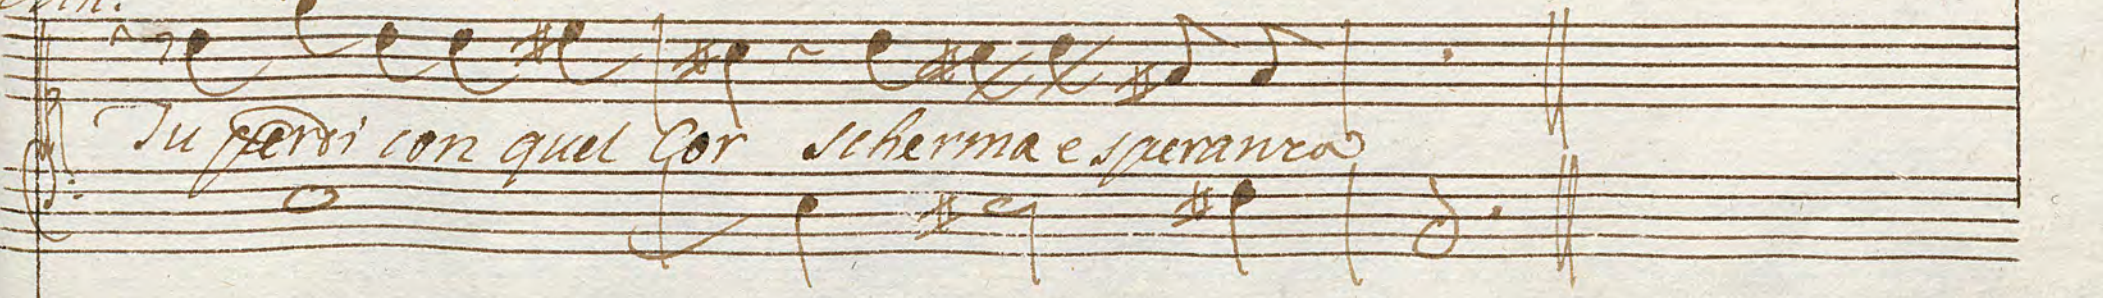 Tu perdi con quel Cor scherma e speranza